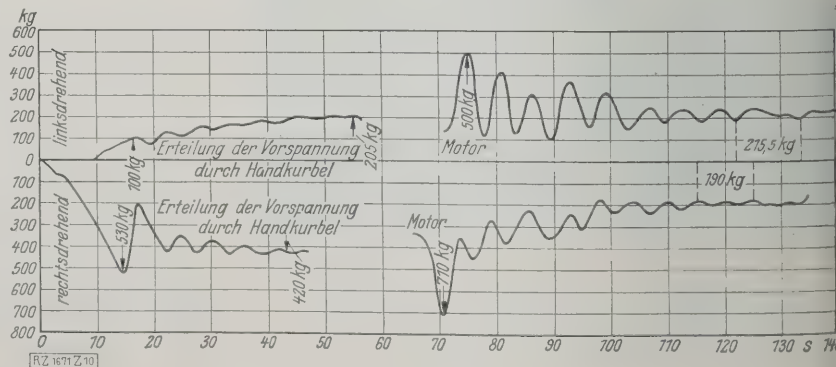 kg
600
500
400
300
200
100
0
100
200
300
400
500
600
700
800
linksdrehend
rechtsdrehend
100 kg
Erteilung der Vorspannung
durch Handkurbel
205 kg
500 kg
Motor
215,5 kg
190 kg
530 kg
Erteilung der Vorspannung
durch Handkurbel
420 kg
Motor
710 kg
0 10 20 30 40 50 60 70 80 90 100 110 120 130 s 140
RZ 1671 Z 10